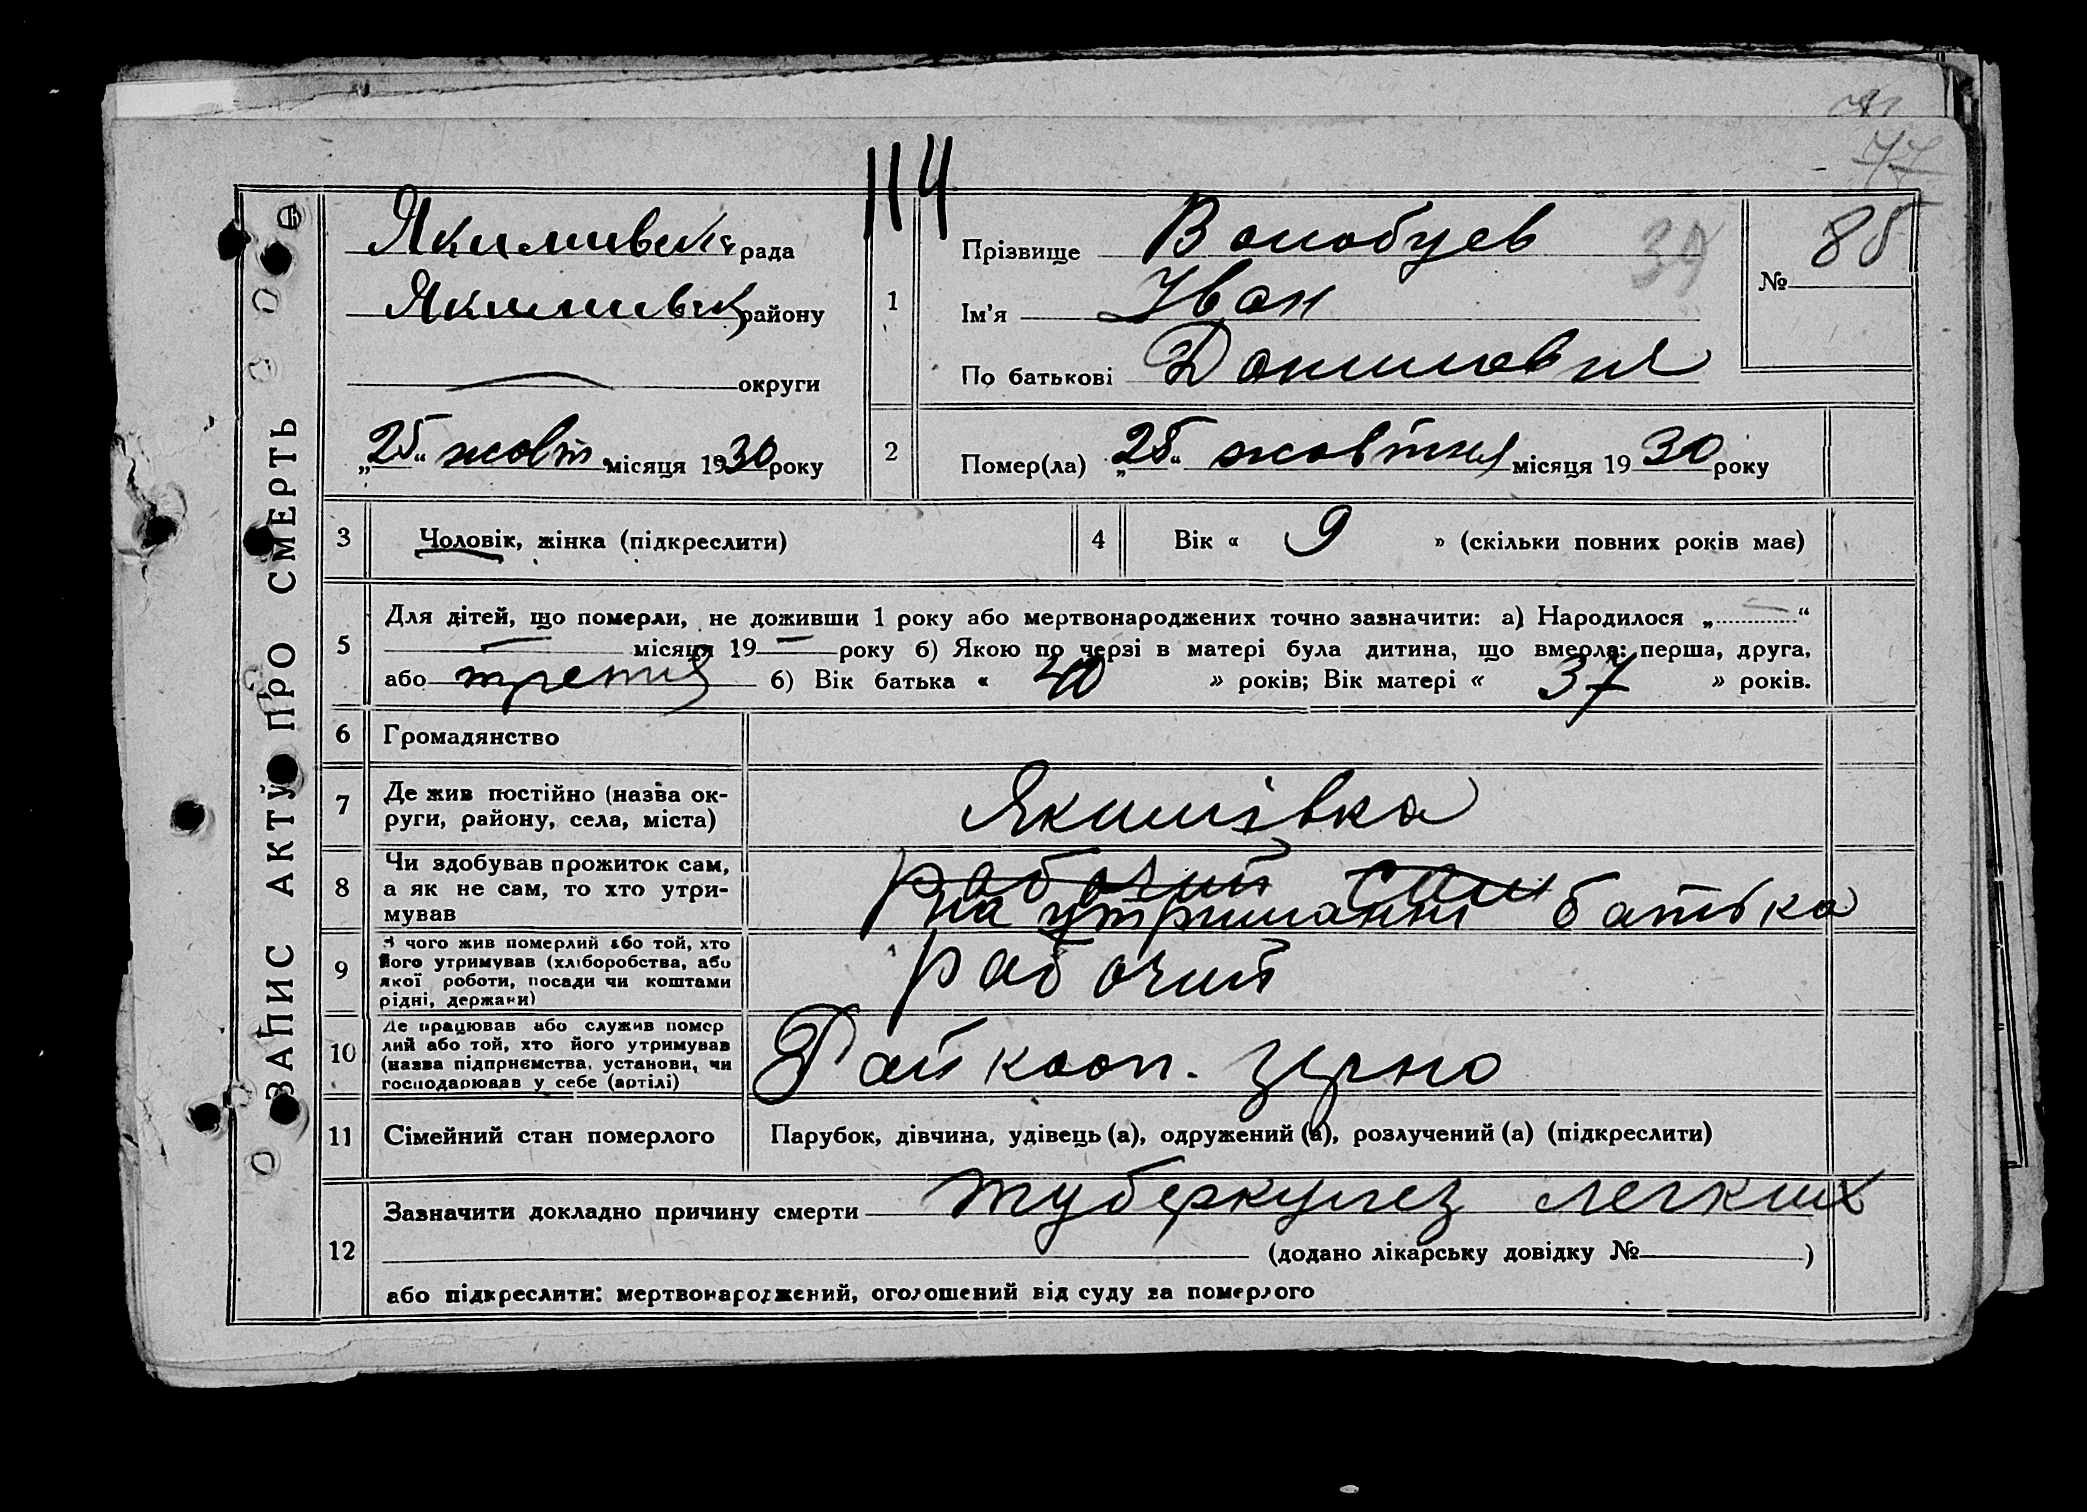 77
114
ЗАПИС АКТУ ПРО СМЕРТЬ
Якимивськ рада
Якимивськ району
округи
„25“ жовт. місяця 1930 року
1
Прізвище Волобуев
39
Ім'я Іван
По батькові Данилович
№ 85
2
Помер(ла) „25“ жовтня місяця 1930 року
3 Чоловік, жінка (підкреслити)
4 Вік « 9 » (скільки повних років має)
5 Для дітей, що померли, не доживши 1 року або мертвонароджених точно зазначити: а) Народилося „—“
— місяця 19 — року б) Якою по черзі в матері була дитина, що вмерла: перша, друга,
або третя б) Вік батька « 40 » років; Вік матері « 37 » років.
6 Громадянство
7 Де жив постійно (назва ок-
руги, району, села, міста)
Якимівка
8 Чи здобував прожиток сам,
а як не сам, то хто утри-
мував
рабочий сам
на утриманні батька
9 З чого жив померлий або той, хто
його утримував (хліборобства, або
якої роботи, посади чи коштами
рідні, держави)
рабочий
10 Де працював або служив помер
лий або той, хто його утримував
(назва підприємства, установи, чи
господарював у себе (артілі)
Райкооп. зерно
11 Сімейний стан померлого
Парубок, дівчина, удівець (а), одружений (а), розлучений (а) (підкреслити)
12 Зазначити докладно причину смерти туберкулез легких
(додано лікарську довідку № )
або підкреслити: мертвонароджений, оголошений від суду за померлого